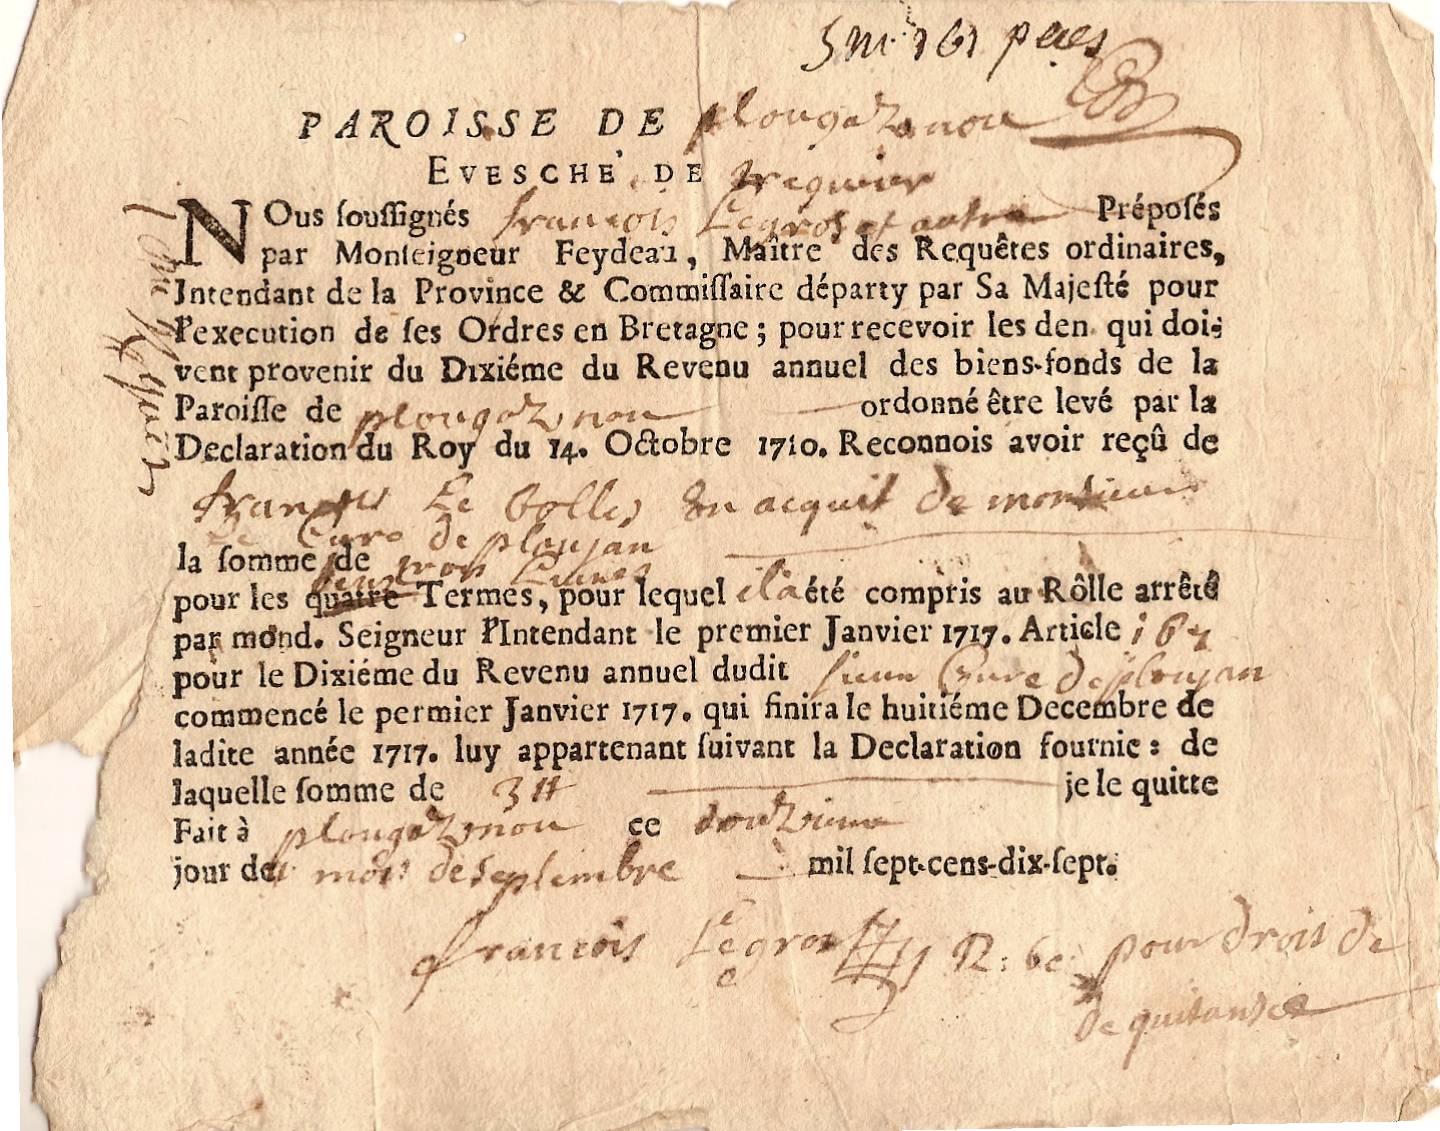 PAROISSE DE plougaznou
EVESCHÉ DE treguier
NOus soussignés francois Legros et autre Préposés
par Monseigneur Feydeau, Maître des Requêtes ordinaires,
Intendant de la Province & Commissaire départy par Sa Majesté pour
l'execution de ses Ordres en Bretagne ; pour recevoir les den. qui doi-
vent provenir du Dixiéme du Revenu annuel des biens-fonds de la
Paroisse de plougaznou ordonné être levé par la
Declaration du Roy du 14. Octobre 1710. Reconnois avoir reçû de
francois Le bolles en acquit de monsieur
Le Cure de ploujan
la somme de trois Liures
pour les quatre Termes, pour lequel il a été compris au Rôlle arrêté
par mond. Seigneur l'Intendant le premier Janvier 1717. Article
pour le Dixiéme du Revenu annuel dudit sieur Cure de ploujan
commencé le permier Janvier 1717. qui finira le huitiéme Decembre de
ladite année 1717. luy appartenant suivant la Declaration fournie : de
laquelle somme de 3 tt je le quitte
Fait à plougaznou ce douzieme
jour de mois de septembre mil sept-cens-dix-sept.
francois Legros pour droit de
de quitansce